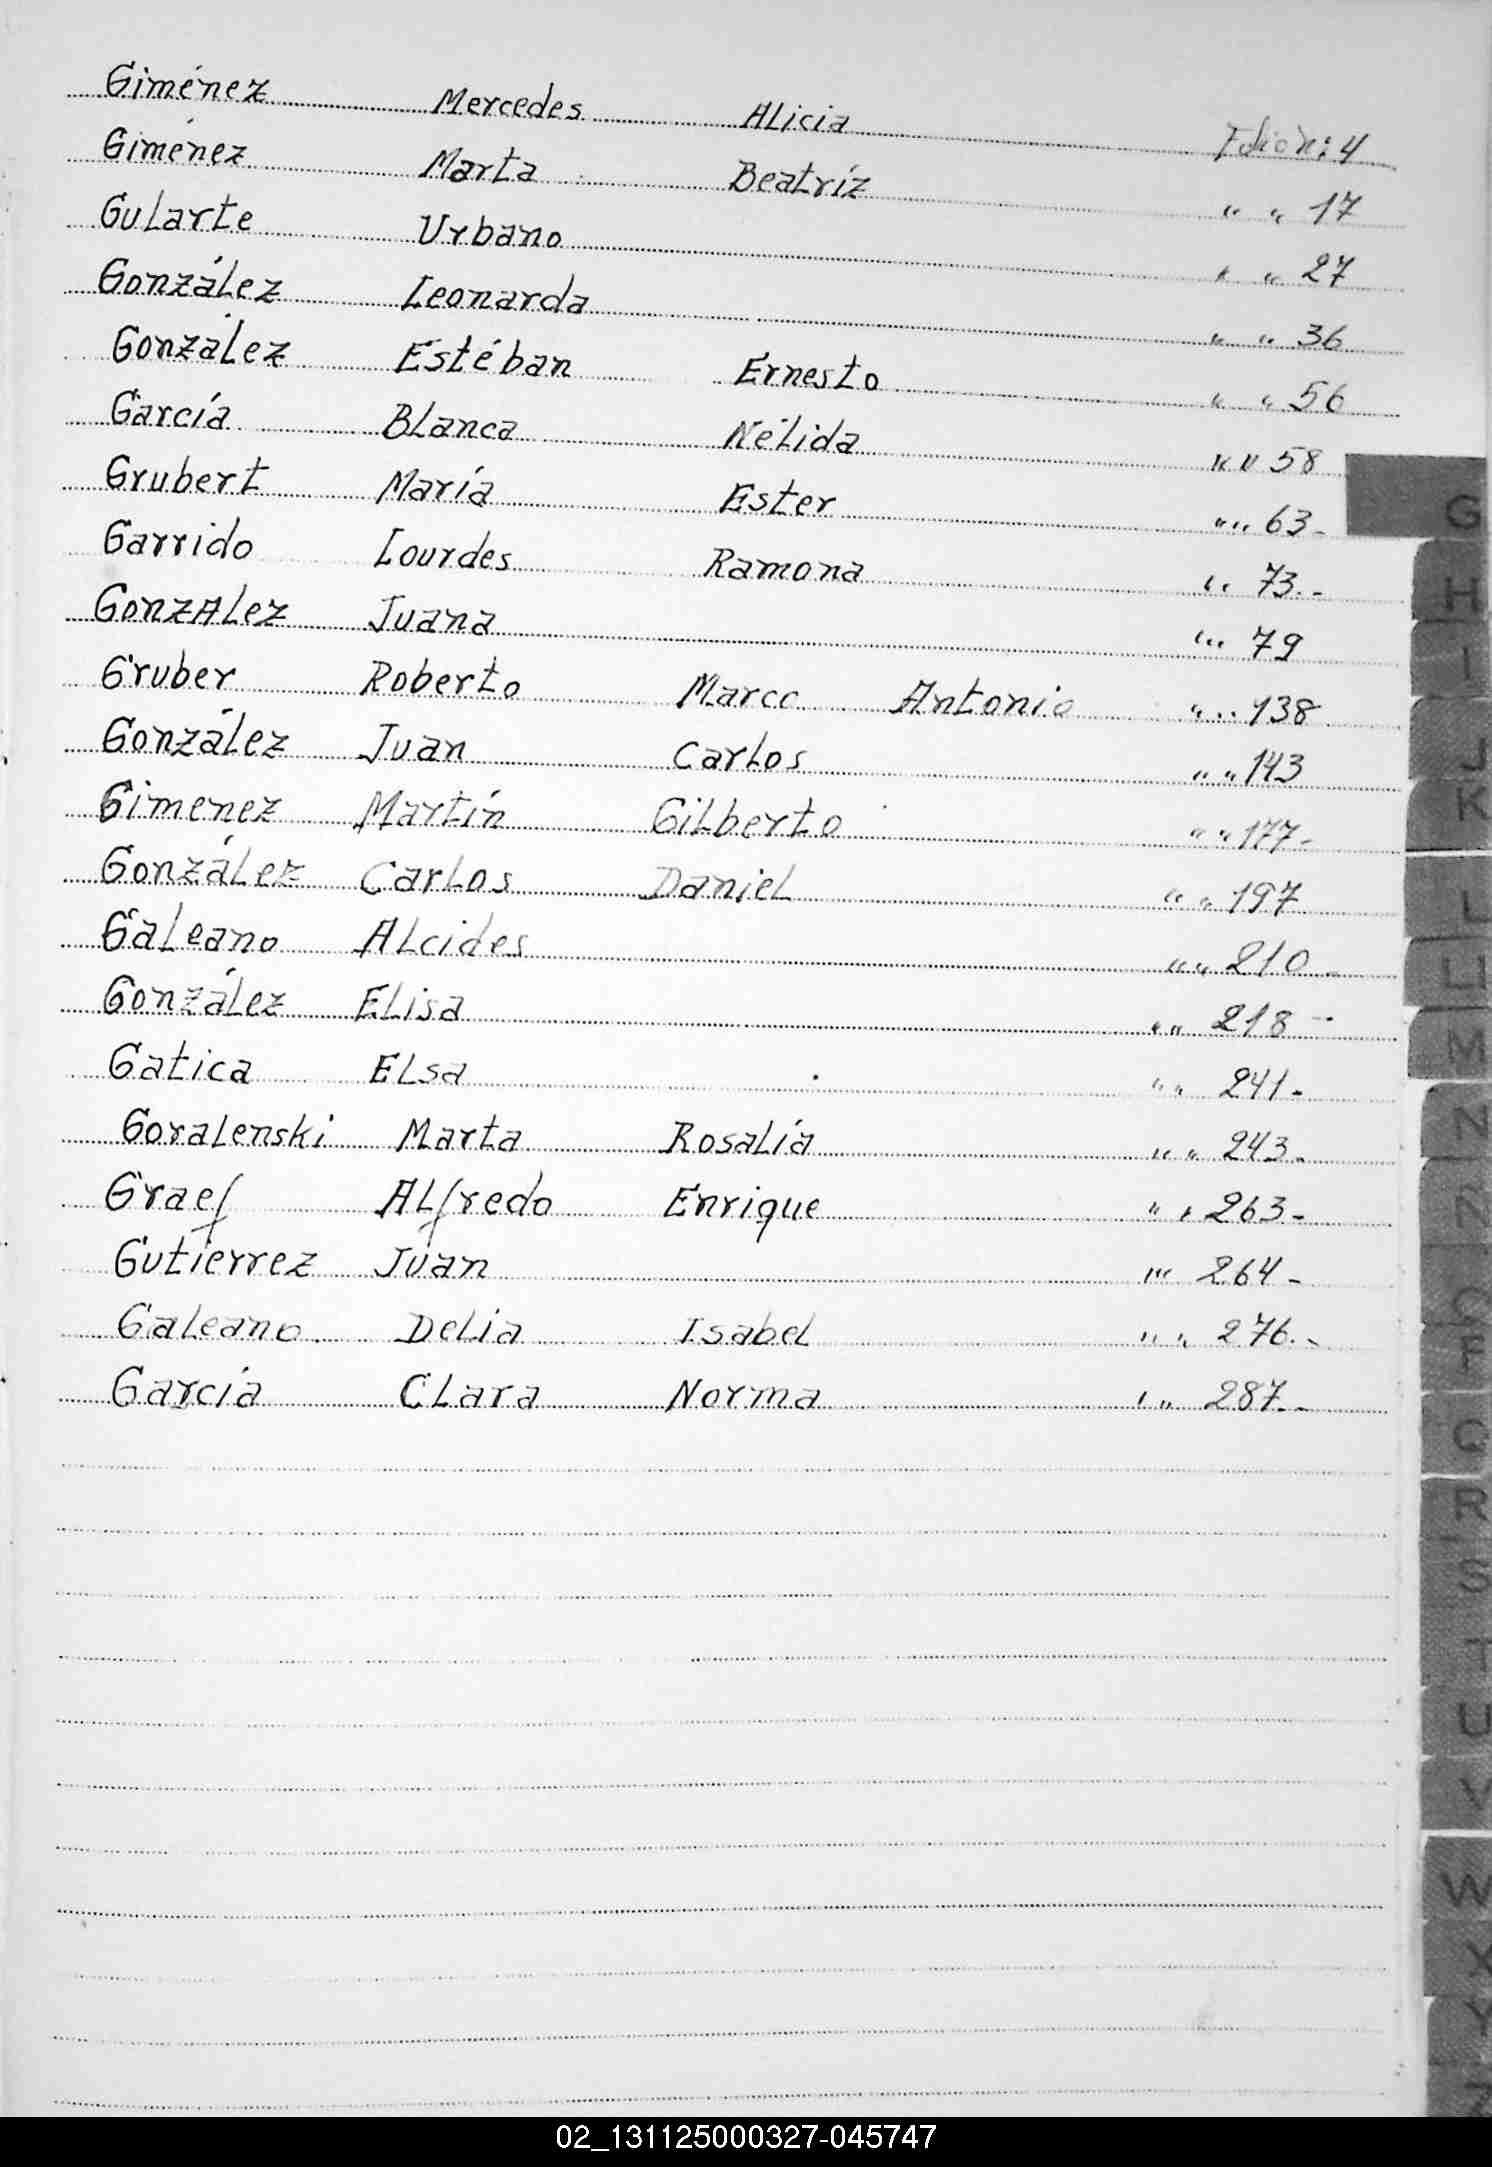 Giménez Mercedes Alicia Folio N: 4
Giménez Marta Beatríz " " 17
Gularte Urbano " " 27
González Leonarda " " 36
González Estéban Ernesto " " 56
García Blanca Nélida " " 58
Grubert María Ester " " 63-
Garrido Lourdes Ramona " 73.-
GonzALez Juana " " 79
Gruber Roberto Marco Antonio " " 138
González Juan Carlos " " 143
Gimenez Martín Gilberto " " 177-
González Carlos Daniel " " 197
Galeano Alcides " " 210-
González Elisa " " 218-
Gatica Elsa " " 241-
Goralenski Marta Rosalía " " 243-
Graef Alfredo Enrique " " 263-
Gutierrez Juan " " 264-
Galeano Delia Isabel " " 276.-
García Clara Norma " " 287.-
G
H
I
J
K
L
Ll
M
N
Ñ
O
P
Q
R
S
T
U
V
W
X
Y
Z
02_131125000327-045747